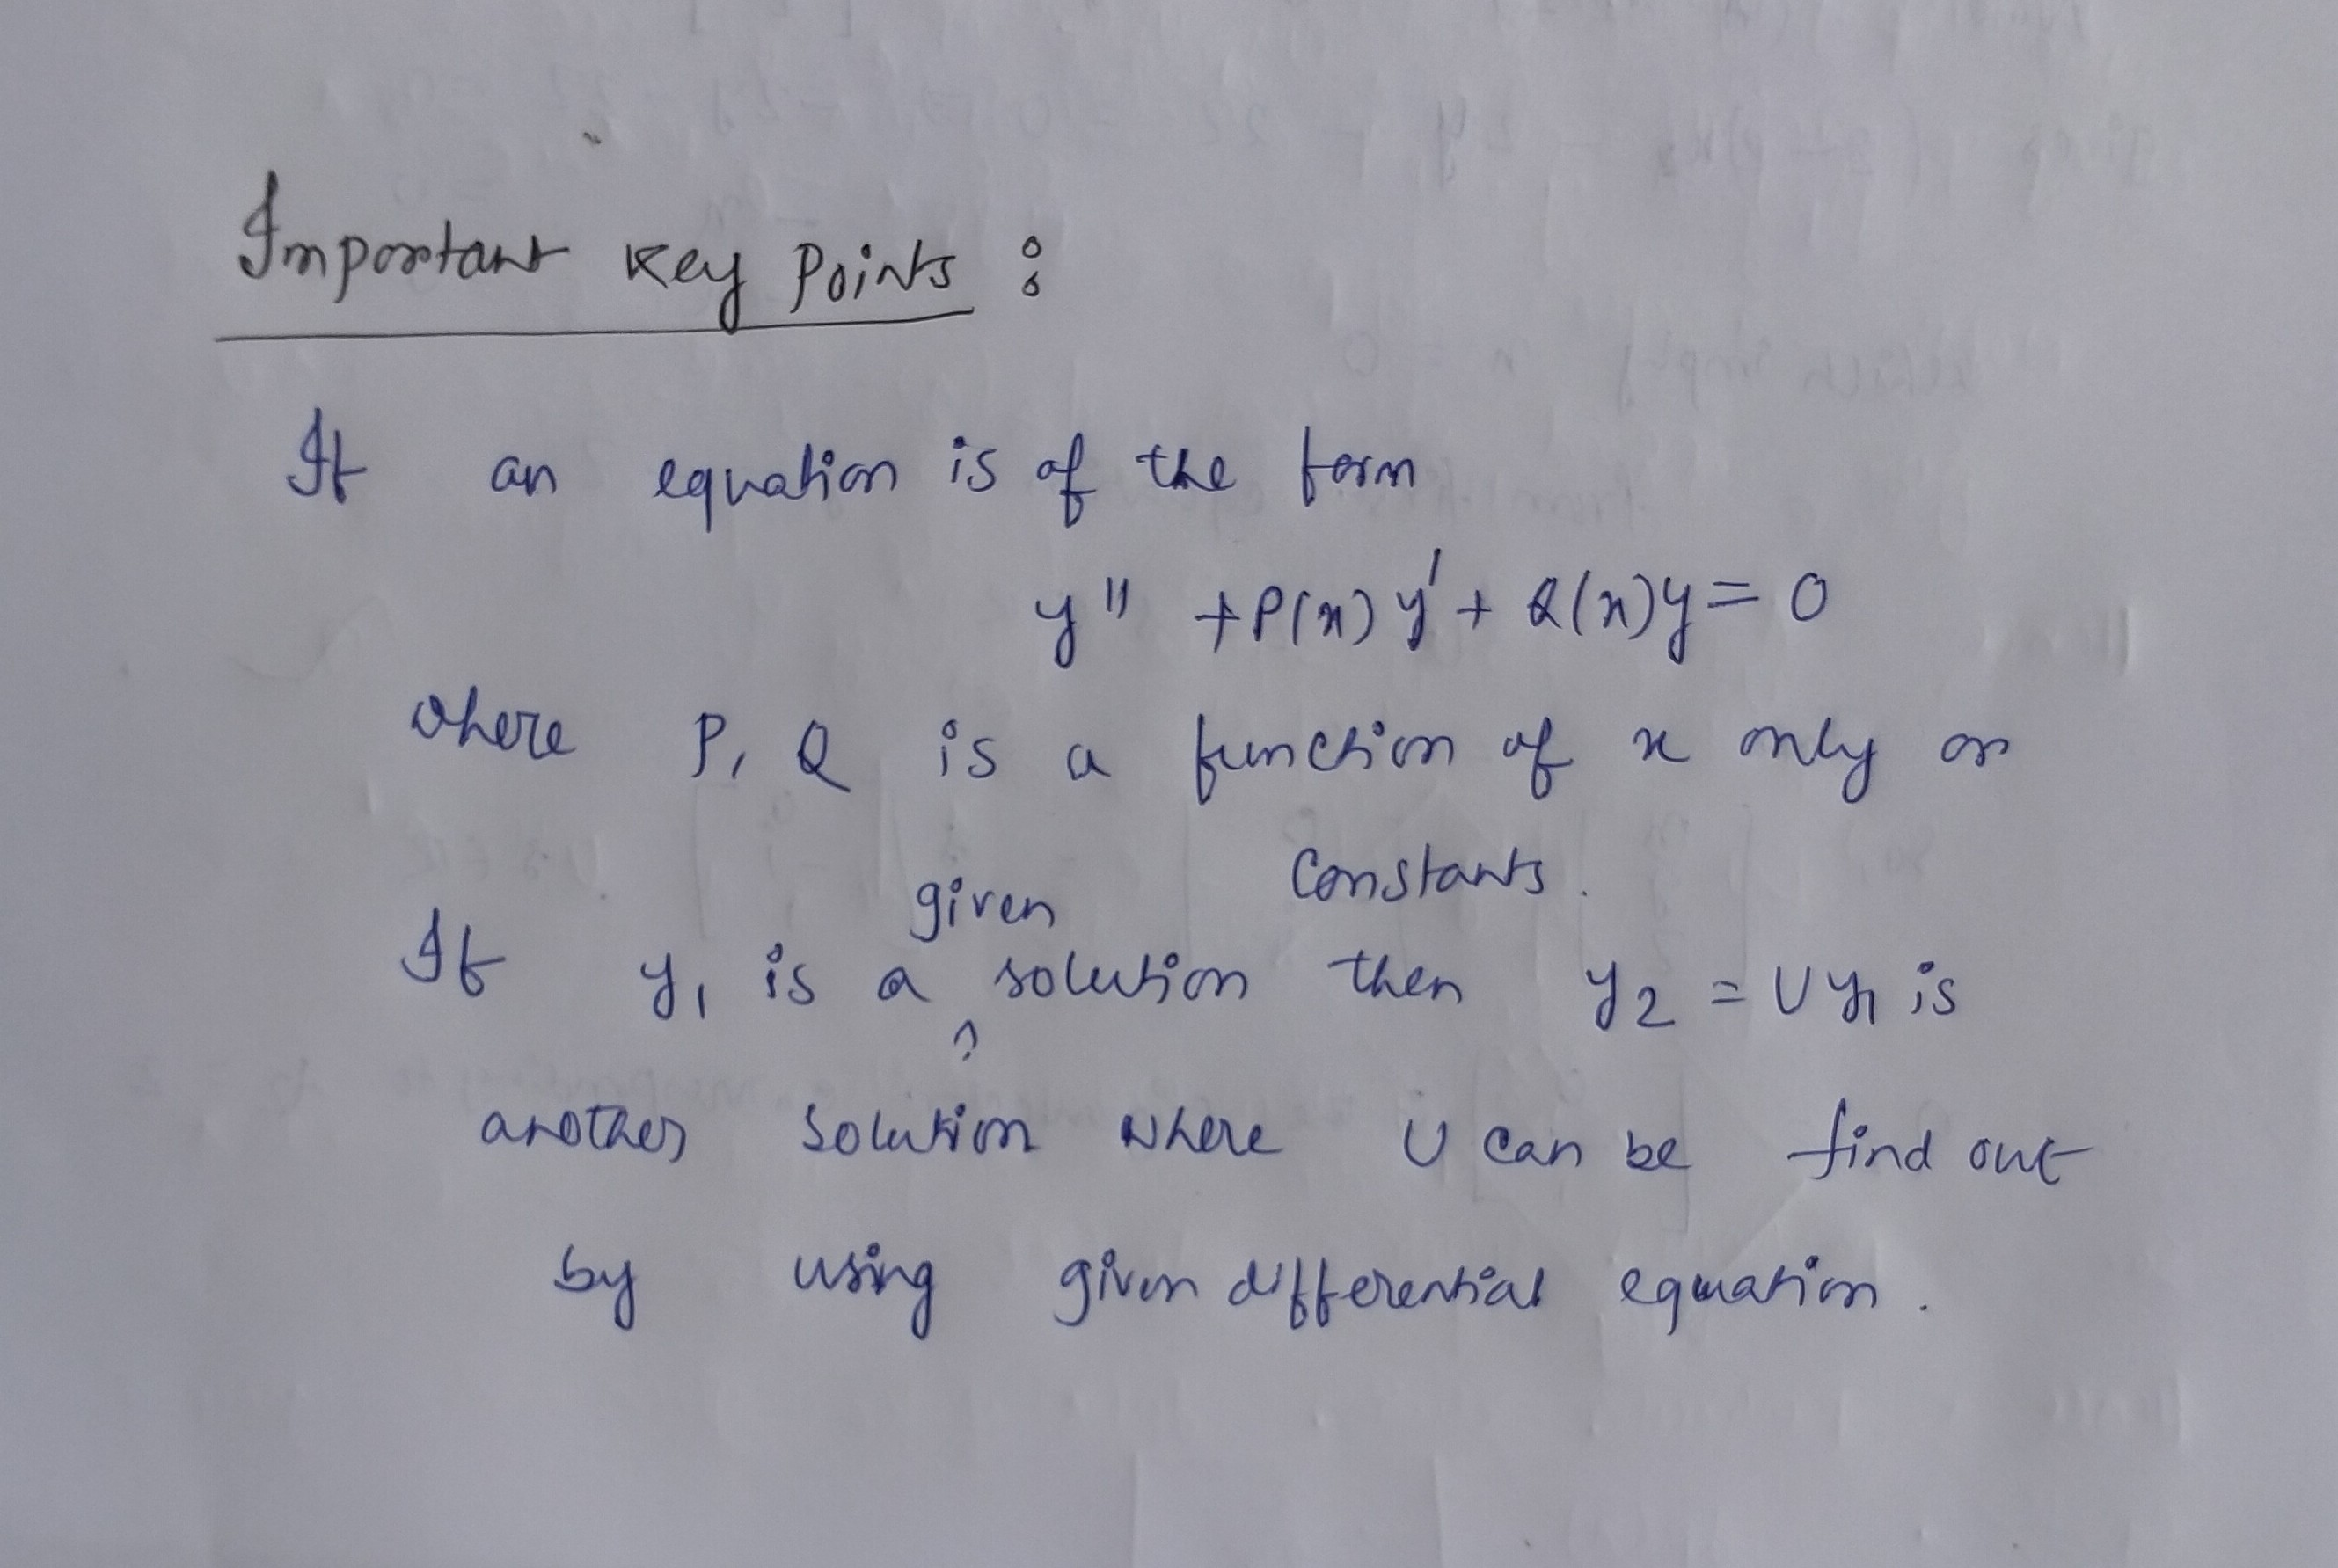 Important Key Points :
If an equation is of the form
y" + P(x) y' + Q(x)y = 0
where P, Q is a function of x only or
constants.
If y₁ is a given solution then y₂ = Uy₁ is
another solution where U can be find out
by using given differential equation.